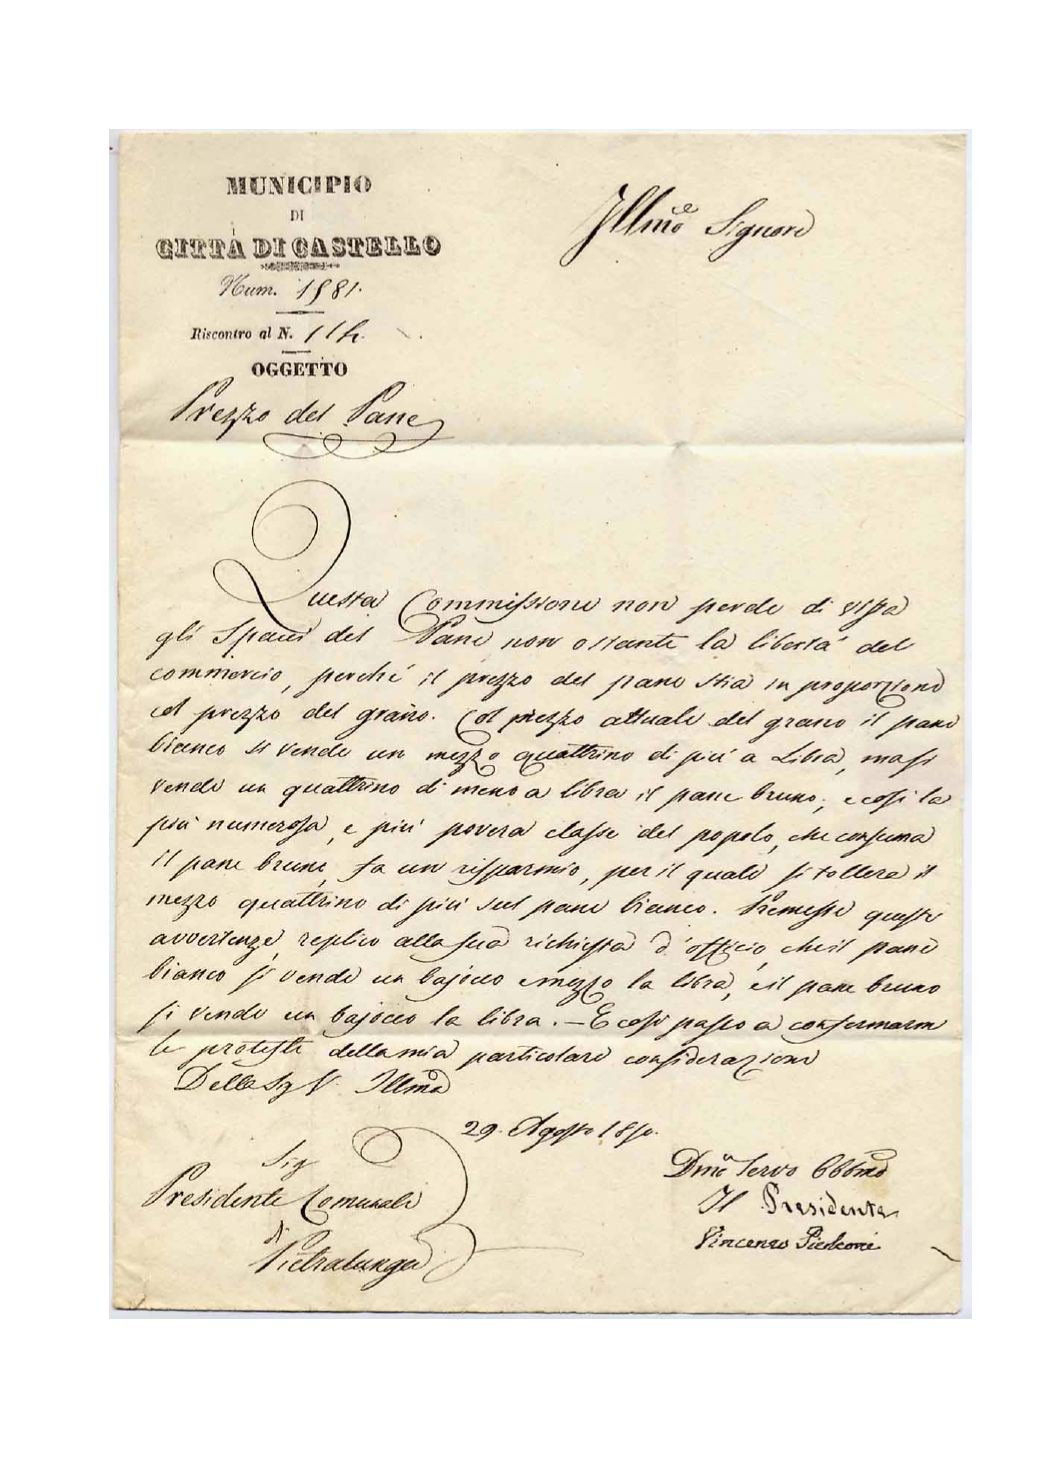 MUNICIPIO
DI
CITTÀ DI CASTELLO
Num. 1881.
Riscontro al N. 114.
OGGETTO
Prezzo del Pane
Illmo Signore
Questa Commissione non perde di vista
gli Spacci del Pane non ostante la libertà del
commercio, perché il prezzo del pane stia in proporzione
col prezzo del grano. Col prezzo attuale del grano il pane
bianco si vende un mezzo quattrino di più a Libra, ma si
vende un quattrino di meno a libra il pane bruno; e così la
più numerosa, e più povera classe del popolo, che consuma
il pane bruno, fa un risparmio, per il quale si tollera il
mezzo quattrino di più sul pane bianco. Premesse queste
avvertenze, replico alla sua richiesta d'officio, che il pane
bianco si vende un bajocco e mezzo la libra, e il pane bruno
si vende un bajocco la libra. — E così passo a confermarmi
le proteste della mia particolare considerazione
Della Sg V. Illma
29. Agosto 1850.
Sig
Presidente Comunale
di
Pietralunga
Dmo Servo Obbmo
Il Presidente
Vincenzo